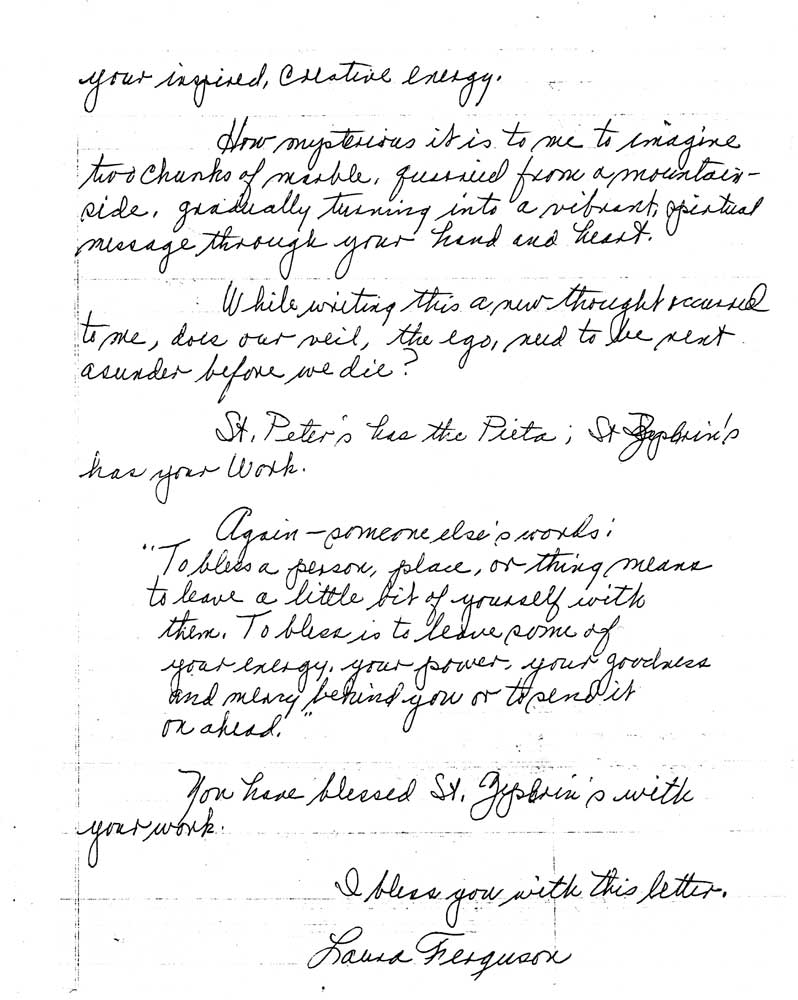 your inspired, creative energy.
How mysterious it is to me to imagine
two chunks of marble, quarried from a mountain-
side, gradually turning into a vibrant, spirtual
message through your hand and heart.
While writing this a new thought occurred
to me, does our veil, the ego, need to be rent
asunder before we die?
St. Peter's has the Pieta; St Zephrin's
has your Work.
Again – someone else's words:
"To bless a person, place, or thing means
to leave a little bit of yourself with
them. To bless is to leave some of
your energy, your power, your goodness
and mercy behind you or to send it
on ahead."
You have blessed St. Zephrin's with
your work.
I bless you with this letter.
Laura Ferguson